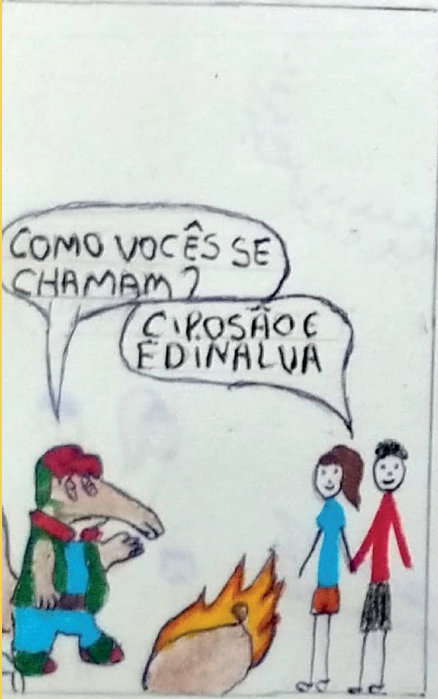 COMO VOCÊS SE
CHAMAM?
CIPOSÃO E
EDINALVA